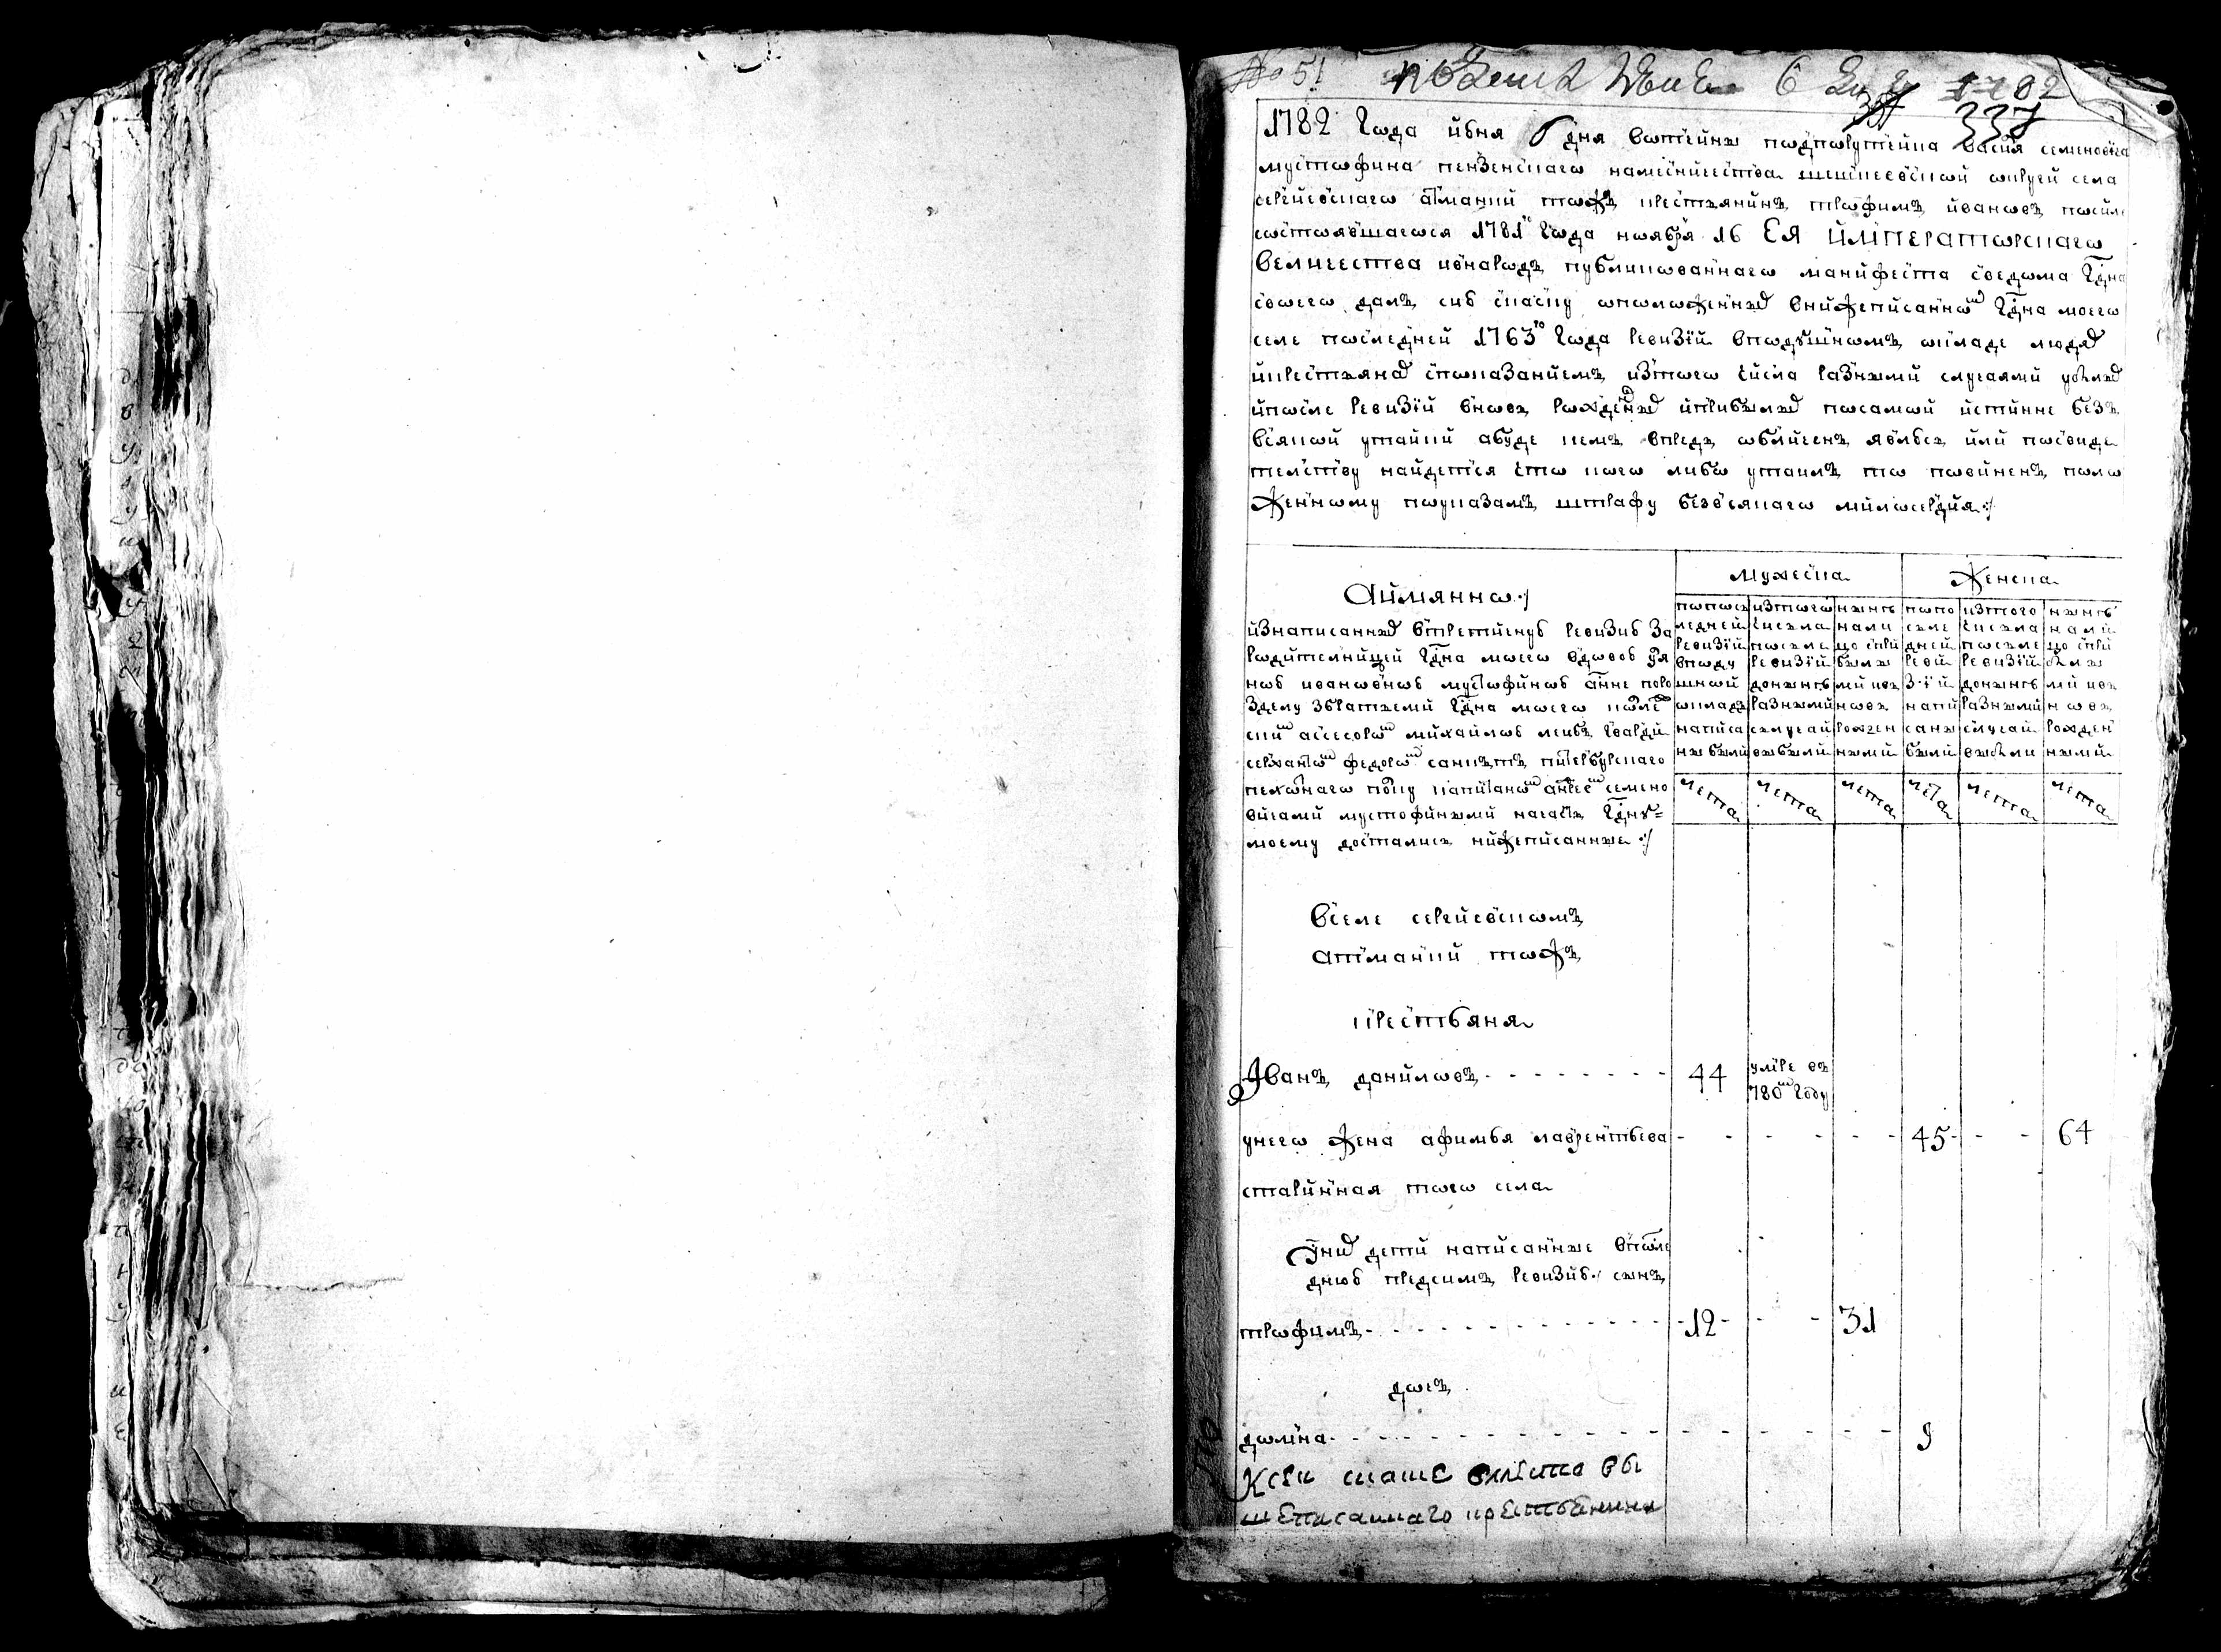 № 51 6 1782
337
1782 года июня 6 дня вотчины подполутчика васил семеновича
мустофина пензенскаго наместничества шешкеевской округи села
сергиевскаго акманки тожъ крестьянинъ трофимъ ивановъ после
состоявшагося 1781го года ноября 16 Ея императорскаго
величества ивнародъ публикованнаго манифеста сведома гдна
своего далъ сию скаску оположенныхъ внижеписанномъ гдна моего
селе последней 1763го года ревизии вподушномъ окладе людяхъ
икрестьянахъ споказаниемъ изтого числа разными случаями убылыхъ
ипосле ревизии вновь рожденныхъ иприбылыхъ посамой истинне безъ
всякой утайки абуде чемъ впредь обличенъ явлюсь или посвиде
телству найдется что кого либо утаилъ то повиненъ поло
женному поуказамъ штрафу безвсякаго милосердия :/
Аимянно :/
мужеска
женска
изнаписанныхъ втретичную ревизию за
родителницей гдна моего вдовою
ивановною мустофиною анне поро
зделу збратьеми гдна моего колле
ским ассесоромъ михайлою гвардии
сержантомъ федоромъ санктъ питербурскаго
пехотнаго полку капитаномъ андреемъ семено
вичами мустофиными начасть гдну
моему достались нижеписанные :/
попосл
ледней
ревизии
вподу
шной
окладъ
написа
ны были
изтого
числа
после
ревизии
доныне
разными
случаи
выбыли
ныне
нали
цо спри
былы
ми ивъ
новь
рожден
ными
попо
сле
дней
реви
зии
напи
саны
были
изтого
числа
после
ревизии
доныне
разными
случаи
выбыли
ныне
нали
цо спри
былы
ми ивъ
новь
рожден
ными
чета чета чета чета чета чета
вселе сергиевскомъ
акманки тожъ
крестьяня
Иванъ даниловъ 44 умре въ
780м году
унего жена афимья лаврентьева 45 64
старинная того села
уних дети написанные впосле
днюю предсимъ ревизию :/ сынъ
трофимъ 12 31
дочь
домна 9
К сей вместо вы
шеписаннаго крестьянина